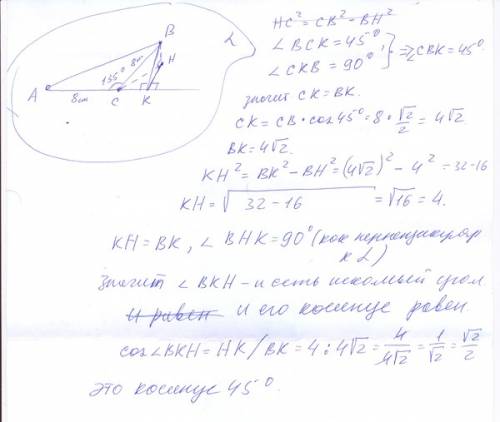 HC² = CB² - BH²
∠BCK = 45°
∠CKB = 90°
⇒ ∠CBK = 45°
B
8см
135°
H
A
8см
C
K
α
значит CK = BK.
CK = CB · cos 45° = 8 · √2/2 = 4√2
BK = 4√2.
KH² = BK² - BH² = (4√2)² - 4² = 32 - 16
KH = √32 - 16 = √16 = 4.
KH = BK, ∠BHK = 90° (как перпендикуляр
к α)
Значит ∠BKH - и есть искомый угол
и равен и его косинус равен
cos∠BKH = HK / BK = 4 : 4√2 = 4/4√2 = 1/√2 = √2/2
это косинус 45°.